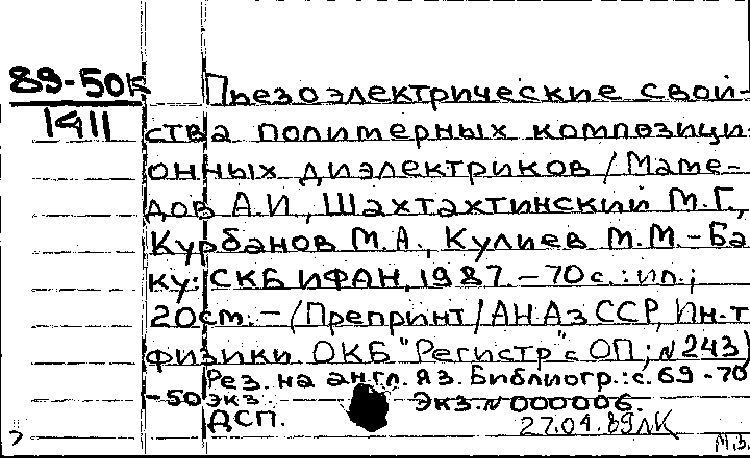 89-50к
1411
Пьезоэлектрические свой-
ства полимерных композици-
онных диэлектриков / Маме-
дов А.И., Шахтахтинский М.Г.,
Курбанов М.А., Кулиев М.М. - Ба
ку: СКБ ИФАН, 1987. - 70 с.: ил.;
20 см. - (Препринт / АН АзССР, Ин-т
физики. ОКБ "Регистр" с ОП; N 243)
Рез. на англ. яз. Библиогр.: с. 69-70
-50 экз. Экз. N 000006.
ДСП.
27.04.89 ЛК
М.З.